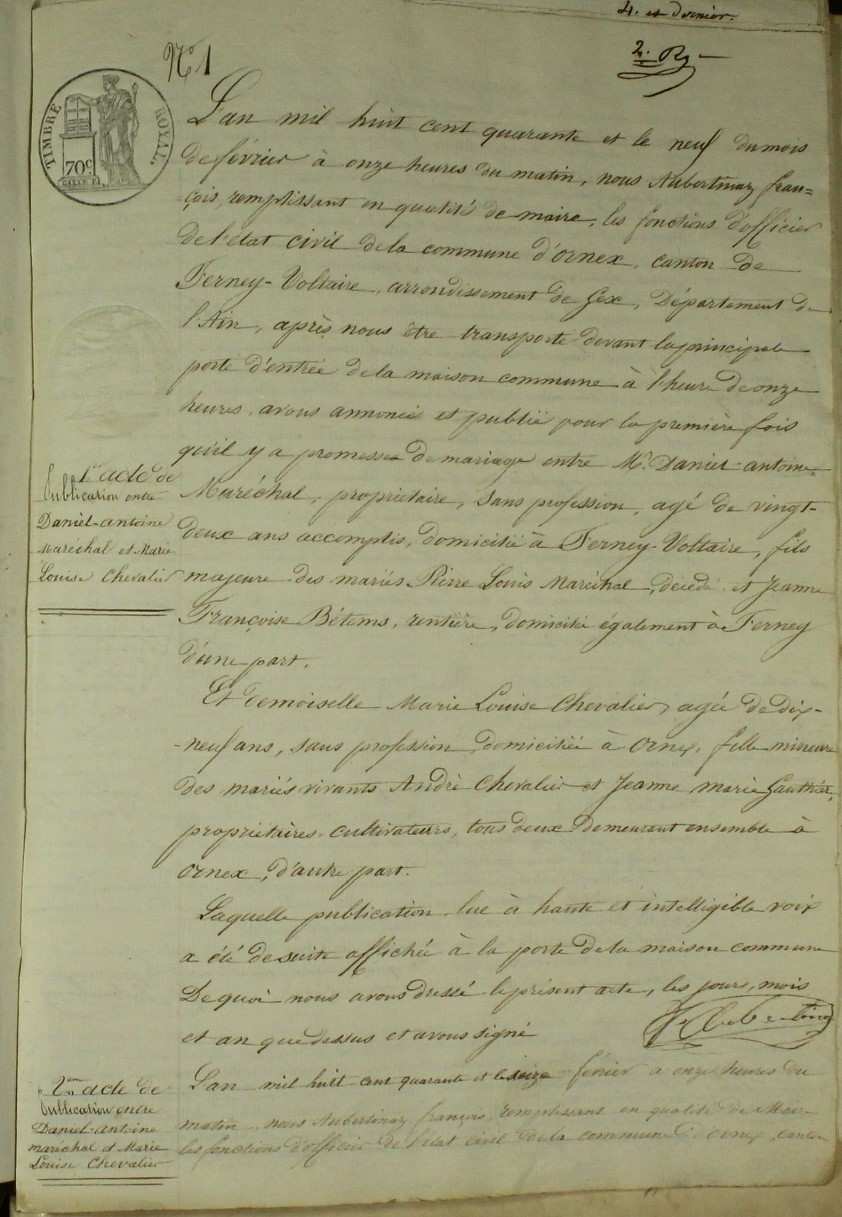 4. et dernier.
2. 
N° 1
TIMBRE ROYAL.
70c
L'an mil huit cent quarante et le neuf du mois
de février à onze heures du matin, nous Aubertinaz fran=
çois, remplissant en qualité de maire, les fonctions d'officier
de l'état civil de la commune d'ornex, canton de
Ferney-Voltaire, arrondissement de Gex, Département de
l'Ain, après nous être transporté devant la principale
porte d'entrée de la maison commune à l'heure de onze
heures, avons annoncé et publié pour la première fois
qu'il y a promesse de mariage entre Mr. Daniel-antoine
Maréchal, propriétaire, sans profession, agé de vingt-
deux ans accomplis, domicilié à Ferney-Voltaire, fils
majeure des mariés Pierre Louis Maréchal, décédé et Jeanne
Françoise Bétems, rentière, domicilié également à Ferney
d'une part.
Et demoiselle Marie Louise Chevalier, agée de dix-
-neuf ans, sans profession, domiciliée à Ornex, fille mineure
des mariés vivants André Chevalier et Jeanne marie Gauthier,
propriétaires-cultivateurs, tous deux demeurant ensemble à
Ornex, d'autre part.
Laquelle publication lue à haute et intelligible voix
a été de suite affichée à la porte de la maison commune
De quoi nous avons dressé le présent acte, les jours, mois
et an que dessus et avons signé
1er acte de
Publication entre
Daniel-antoine
Maréchal et Marie
Louise Chevalier
L'an mil huit cent quarante et le seize février à onze heures du
matin, nous Aubertinaz françois, remplissant en qualité de Maire
les fonctions d'officier de l'état civil de la commune d'ornex, canton
2em acte de
Publication entre
Daniel-Antoine
maréchal et Marie
Louise Chevalier